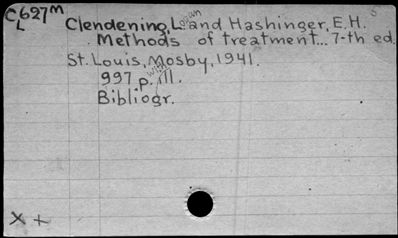 C627m
L
Clendening, Logan and Hashinger, E.H.
Methods of treatment... 7-th ed.
St. Louis, Mosby, 1941.
997 p. with ill.
Bibliogr.
X +